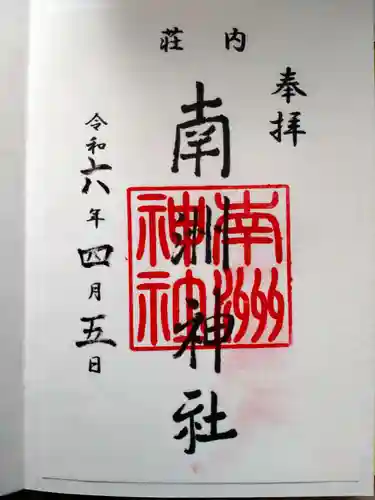 奉拝
荘内
南洲神社
南洲神社
令和六年四月五日